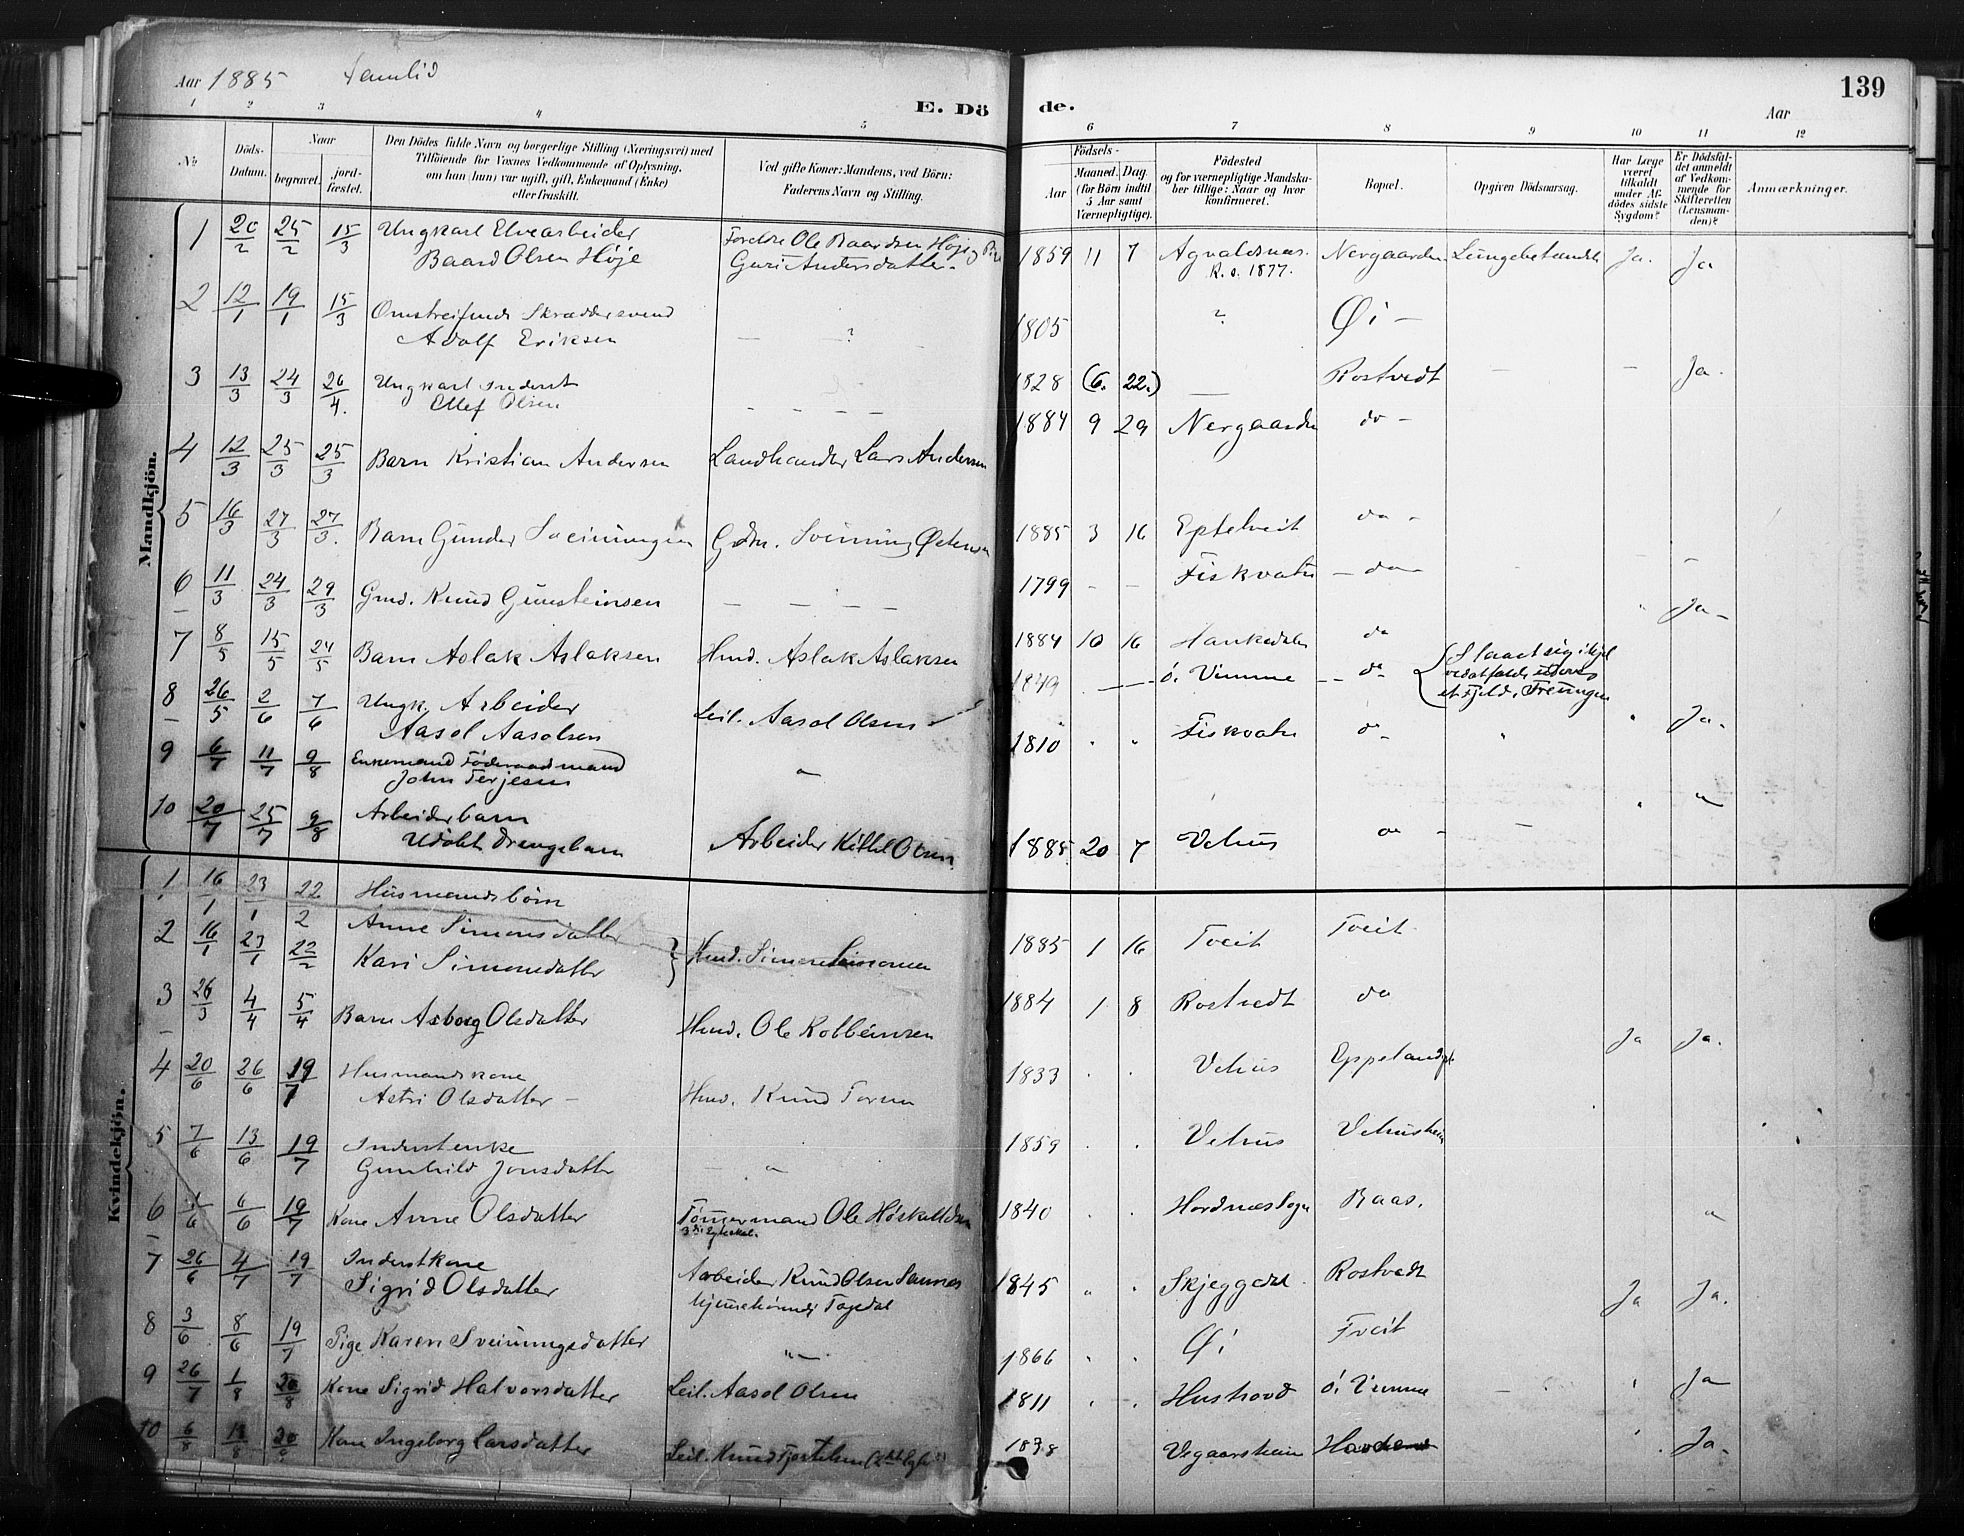 Aar 1885
E. Dö de.
139
Aar
1 2 3 4 5 6 7 8 9 10 11 12
No
Döds-Datum.
Naar
begravet.
jord-fæstet.
Den Dödes fulde Navn og borgerlige Stilling (Næringsvei) med
Tilföiende for Voxnes Vedkommende af Oplysning,
om han (hun) var ugift, gift, Enkemand (Enke)
eller fraskilt.
Ved gifte Koner: Mandens, ved Börn:
Faderens Navn og Stilling.
Födsels-
Aar
Maaned. Dag
(for Börn indtil
5 Aar samt
Værnepligtige).
Födested
og for værnepligtige Mandska-
ber tillige: Naar og hvor
konfirmeret.
Bopæl.
Opgiven Dödsaarsag.
Har Læge
været
tilkaldt
under Af-
dödes sidste
Sygdom?
Er Dödsfal-
det anmeldt
af Vedkom-
mende for
Skifteretten
(Lensman-
den)?
Anmærkninger.
Mandkjön.
1 20/2 25/2 15/3 Ungkarl Elvearbeider Baard Olsen Höje Foreldre Ole Baardsen Höje og Guri Andersdatter. 1859 11 7 Nergaarden Lungebetændelse Ja. Ja
K. o. 1877.
2 12/1 19/1 15/3 Omstreifende Skræddersvend Adolf Eriksen — ? 1805 ? Øi —
3 13/3 24/3 26/4. Ungkarl Inderst Ellef Olsen — — — — 1828 (6. 22.) — Rostvedt — — Ja.
4 12/3 25/3 25/3 Barn Kristian Andersen Landhandler Lars Andersen 1884 9 29 Nergaarden do —
5 16/3 27/3 27/3. Barn Gunder Sveinungsen Gdm. Sveinung Østensen 1885 3 16 Eptetveit do -
6 11/3 24/3 29/3 Gmd. Knud Gunsteinsen — — — — 1799 - - Fiskvatn — do — Ja -
7 8/5 15/5 24/5 Barn Aslak Aslaksen Hmd. Aslak Aslaksen 1884 10 16 do
8 26/5 2/6 7/6 Ungk. Arbeider Aasol Aasolsen Leil. Aasol Olsen 1849 — ö. Vimme — do { Slaaet sig ihjel ved at falde udover et Fjeld i Treungen Ja.
9 6/7 11/7 9/8 Enkemand Föderaadmand John Terjesen " 1810 " " Fiskvatn do "
10 20/7 25/7 9/8 Arbeiderbarn Udöbt Drengebarn Arbeider Kittel Olsen 1885 20 7 Vehus do - —
Kvindekjön.
1 16/1 23/1 22/2 Husmandsbörn
Anne Simonsdatter
2 16/1 23/1 22/2 Kari Simonsdatter } Hmd. Simon Simonsen 1885 1 16 Tveit Tveit
3 26/3 4/4 5/4 Barn Asborg Olsdatter Hmd. Ole Kolbeinsen 1884 1 8 Rostvedt do
4 20/6 26/6 19/7 Husmandskone Astri Olsdatter — Hmd. Knud 1833 . . Vehus Ja Ja.
5 7/6 13/6 19/7 Inderstenke Gunhild Jonsdatter — " 1859 . . Vehus Vehusheia
6 1/6 6/6 19/7 Kone Anne Olsdatter Tömmermand Ole 1840 . . Baas. "
7 26/6 4/7 19/7 Inderstkone Sigrid Olsdatter Arbeider Knud Olsen 1845 " . Rostvedt Ja Ja.
8 3/6 8/6 19/7 Pige Karen Sveinungsdatter " 1866 . . Øi Tveit
9 26/7 1/8 30/8 Kone Sigrid Halvorsdatter Leil. Aasol Olsen 1811 . . ö. Vimme — Ja
10 6/8 13/8 Kone Ingeborg Larsdatter Leil. Knud 1838 Vegaarsheien Ja.